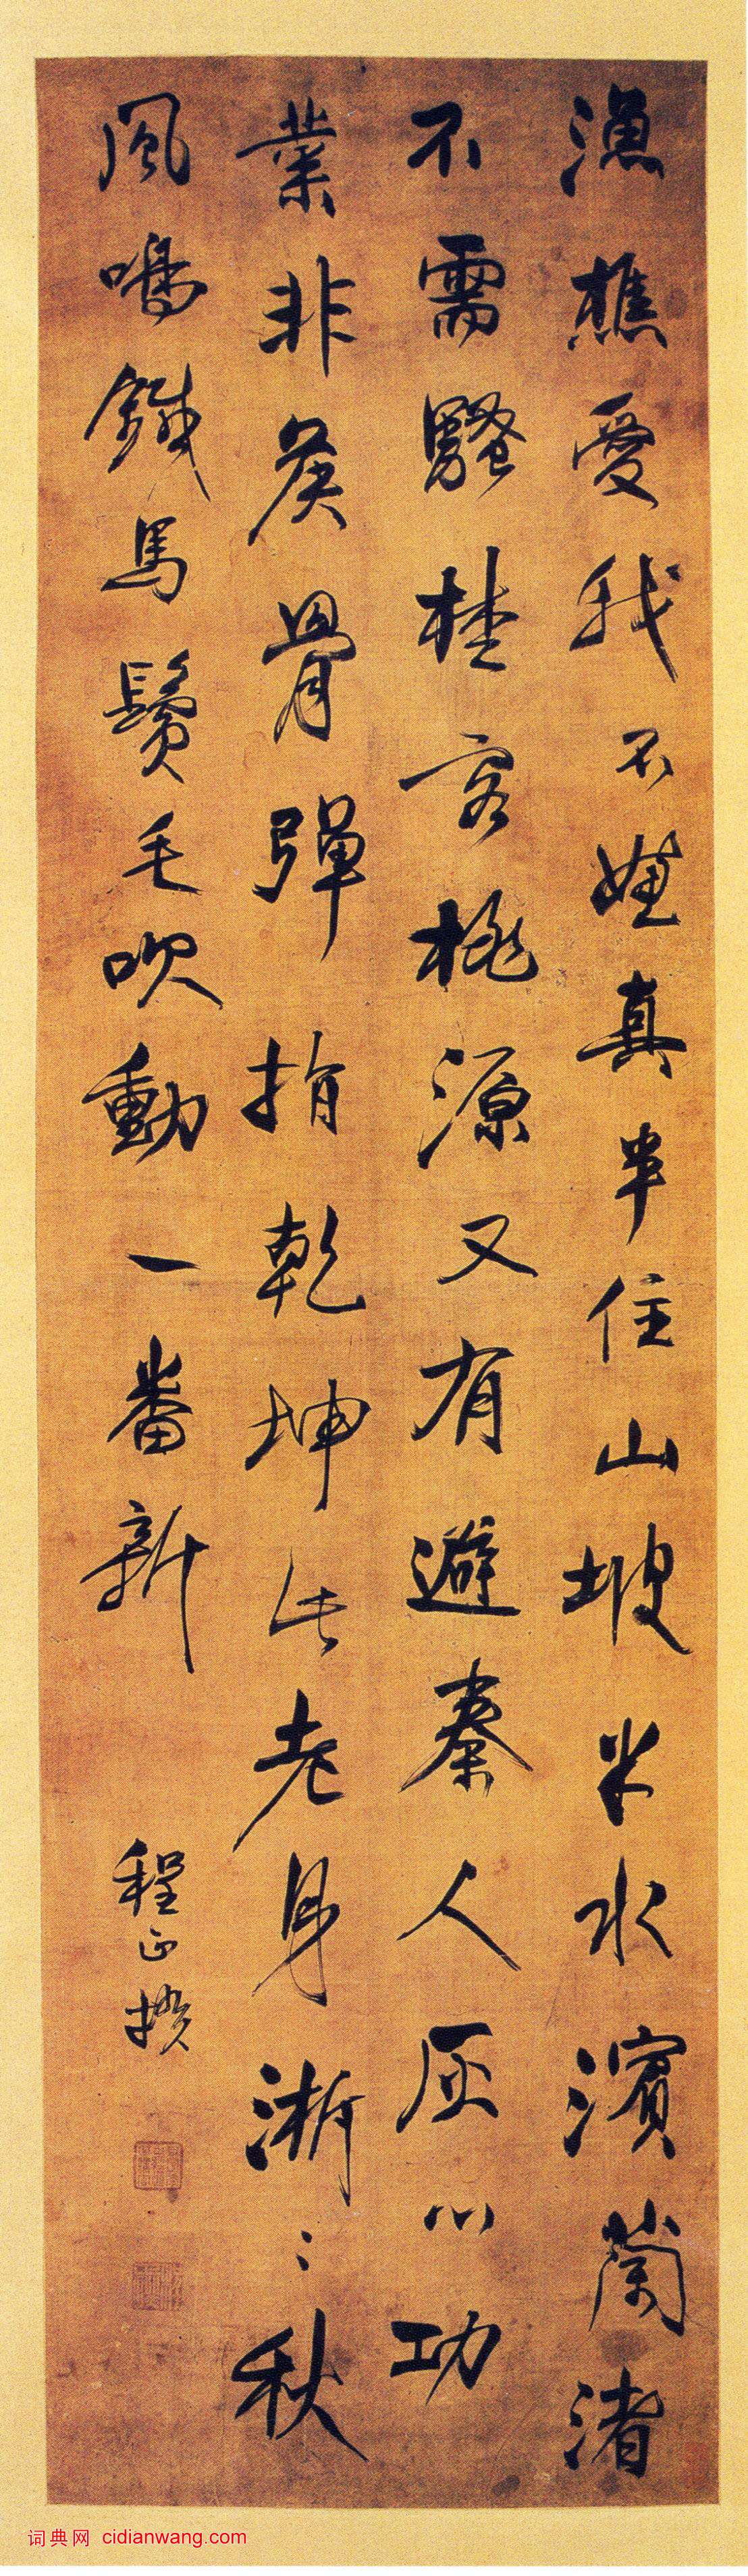 漁樵愛我不嫌真半住山坡半水濱蘭渚
不需騷楚客桃源又有避秦人灰心功
業非侯骨彈指乾坤此老身淅〻秋
風鳴鐵馬鬢毛吹動一番新
程正揆
词典网 cidianwang.com